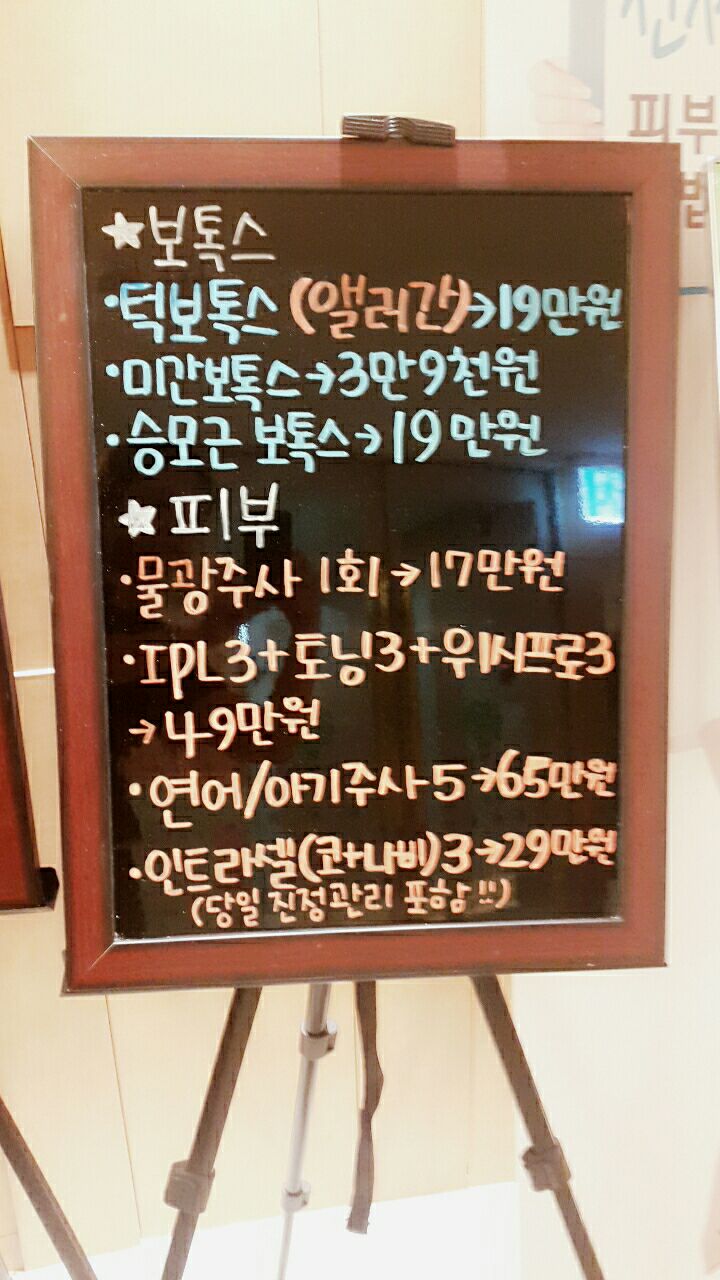 ★보톡스
·턱보톡스 (앨러간)→19만원
·미간보톡스→3만9천원
·승모근 보톡스→19만원
★피부
·물광주사 1회→17만원
·IPL3+토닝3+위시프로3
→49만원
·연어/아기주사5→65만원
·인트라셀(코+나비)3→29만원
(당일 진정관리 포함!!)
피부
법